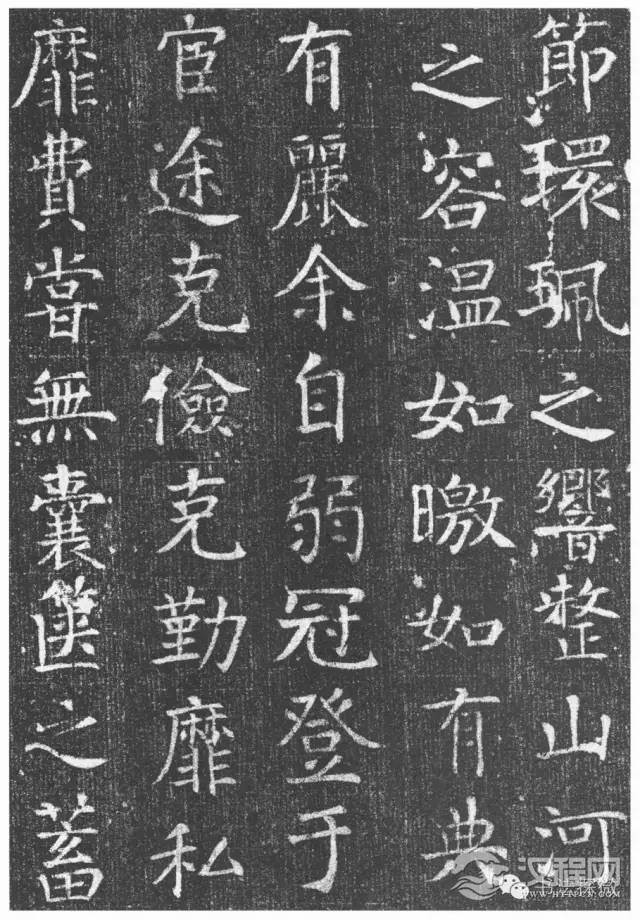 節環珮之響整山河
之容温如曒如有典
有麗余自弱冠登于
宦途克儉克勤靡私
靡費嘗無囊篋之蓄
汉程网
WWW.HTTPCN.COM